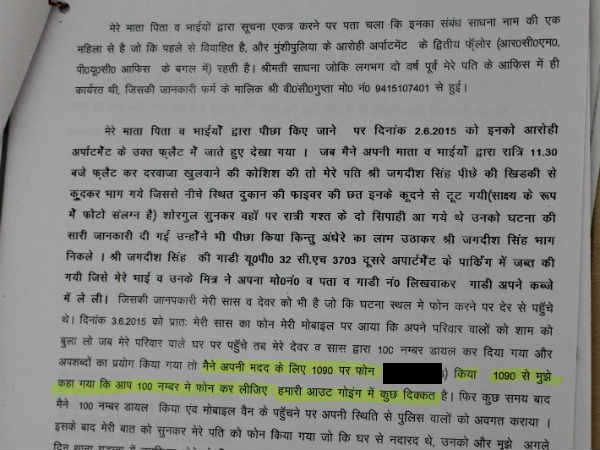 मेरे माता पिता व भाईयों द्वारा सूचना एकत्र करने पर पता चला कि इनका संबंध साधना नाम की एक
महिला से है जो कि पहले से विवाहित है, और मुंशीपुलिया के आरोही अर्पाटमेंट के द्वितीय फ्लोर (आर०सी०एम०,
पी०यू०सी० आफिस के बगल में) रहती है। श्रीमती साधना जोकि लगभग दो वर्ष पूर्व मेरे पति के आफिस में ही
कार्यरत थी, जिसकी जानकारी फर्म के मालिक श्री वी०सी०गुप्ता मो० नं० 9415107401 से हुई।
मेरे माता पिता व भाईयों द्वारा पीछा किए जाने पर दिनांक 2.6.2015 को इनको आरोही
अर्पाटमेंट के उक्त फ्लैट में जाते हुए देखा गया । जब मैने अपनी माता व भाईयों द्वारा रात्रि 11.30
बजे फ्लैट कर दरवाजा खुलवाने की कोशिश की तो मेरे पति श्री जगदीश सिंह पीछे की खिडकी से
कूदकर भाग गये जिससे नीचे स्थित दुकान की फाइवर की छत इनके कूदने से टूट गयी(साक्ष्य के रूप
में फोटो संलग्न है) शोरगुल सुनकर वहाँ पर रात्री गश्त के दो सिपाही आ गये थे उनको घटना की
सारी जानकारी दी गई उन्होंने भी पीछा किया किन्तु अंधेरे का लाभ उठाकर श्री जगदीश सिंह भाग
निकले । श्री जगदीश सिंह की गाडी यू०पी० 32 सी.एच 3703 दूसरे अपार्टमेंट के पार्किग में जब्त की
गयी जिसे मेरे भाई व उनके मित्र ने अपना मो०नं० व पता व गाडी नं० लिखवाकर गाडी अपने कब्जे
में ले ली। जिसकी जानपकारी मेरी सास व देवर को भी है जो कि घटना स्थल मे फोन करने पर देर से पहुँचे
थे। दिनांक 3.6.2015 को प्रातः मेरी सास का फोन मेरी मोबाइल पर आया कि अपने परिवार वालों को शाम को
बुला लो जब मेरे परिवार वाले घर पर पहुँचे तब मेरे देवर व सास द्वारा 100 नम्बर डायल कर दिया गया और
अपशब्दों का प्रयोग किया गया तो मैने अपनी मदद के लिए 1090 पर फोन किया 1090 से मुझे
कहा गया कि आप 100 नम्बर मे फोन कर लीजिए हमारी आउट गोइंग में कुछ दिक्कत है। फिर कुछ समय बाद
मैने 100 नम्बर डायल किया एवं मोबाइल वैन के पहुँचने पर अपनी स्थिति से पुलिस वालों को अवगत कराया ।
इसके बाद मेरी बात को सुनकर मेरे पति को फोन किया गया जो कि घर से नदारद थे, उनको और मुझे अगले
दिन थाना